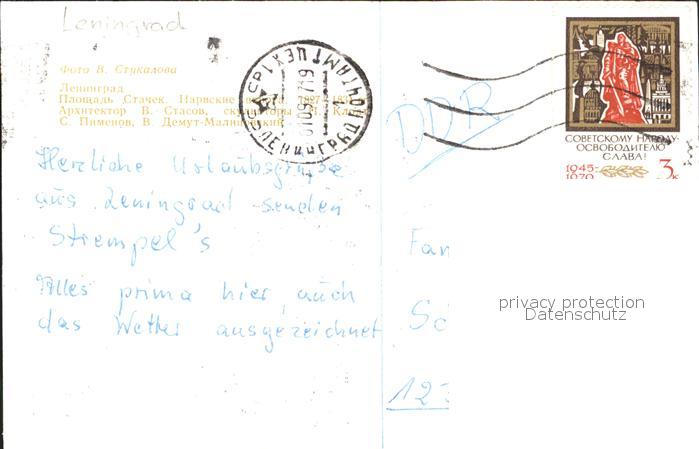 Leningrad
Фото В. Стукалова
Ленинград
Площадь Стачек. Нарвские
Архитектор В. Стасов,
С. Пименов, В. Демут-Малиновский
Herzliche Urlaubsgrüße
aus Leningrad senden
Strempel's
Alles prima hier, auch
das Wetter ausgezeichnet
ЛЕНИНГРАД ПОЧТАМТ
DDR
СОВЕТСКОМУ НАРОДУ-
ОСВОБОДИТЕЛЮ
СЛАВА!
1945-
1970
3к
Fam
Sc
12
privacy protection
Datenschutz